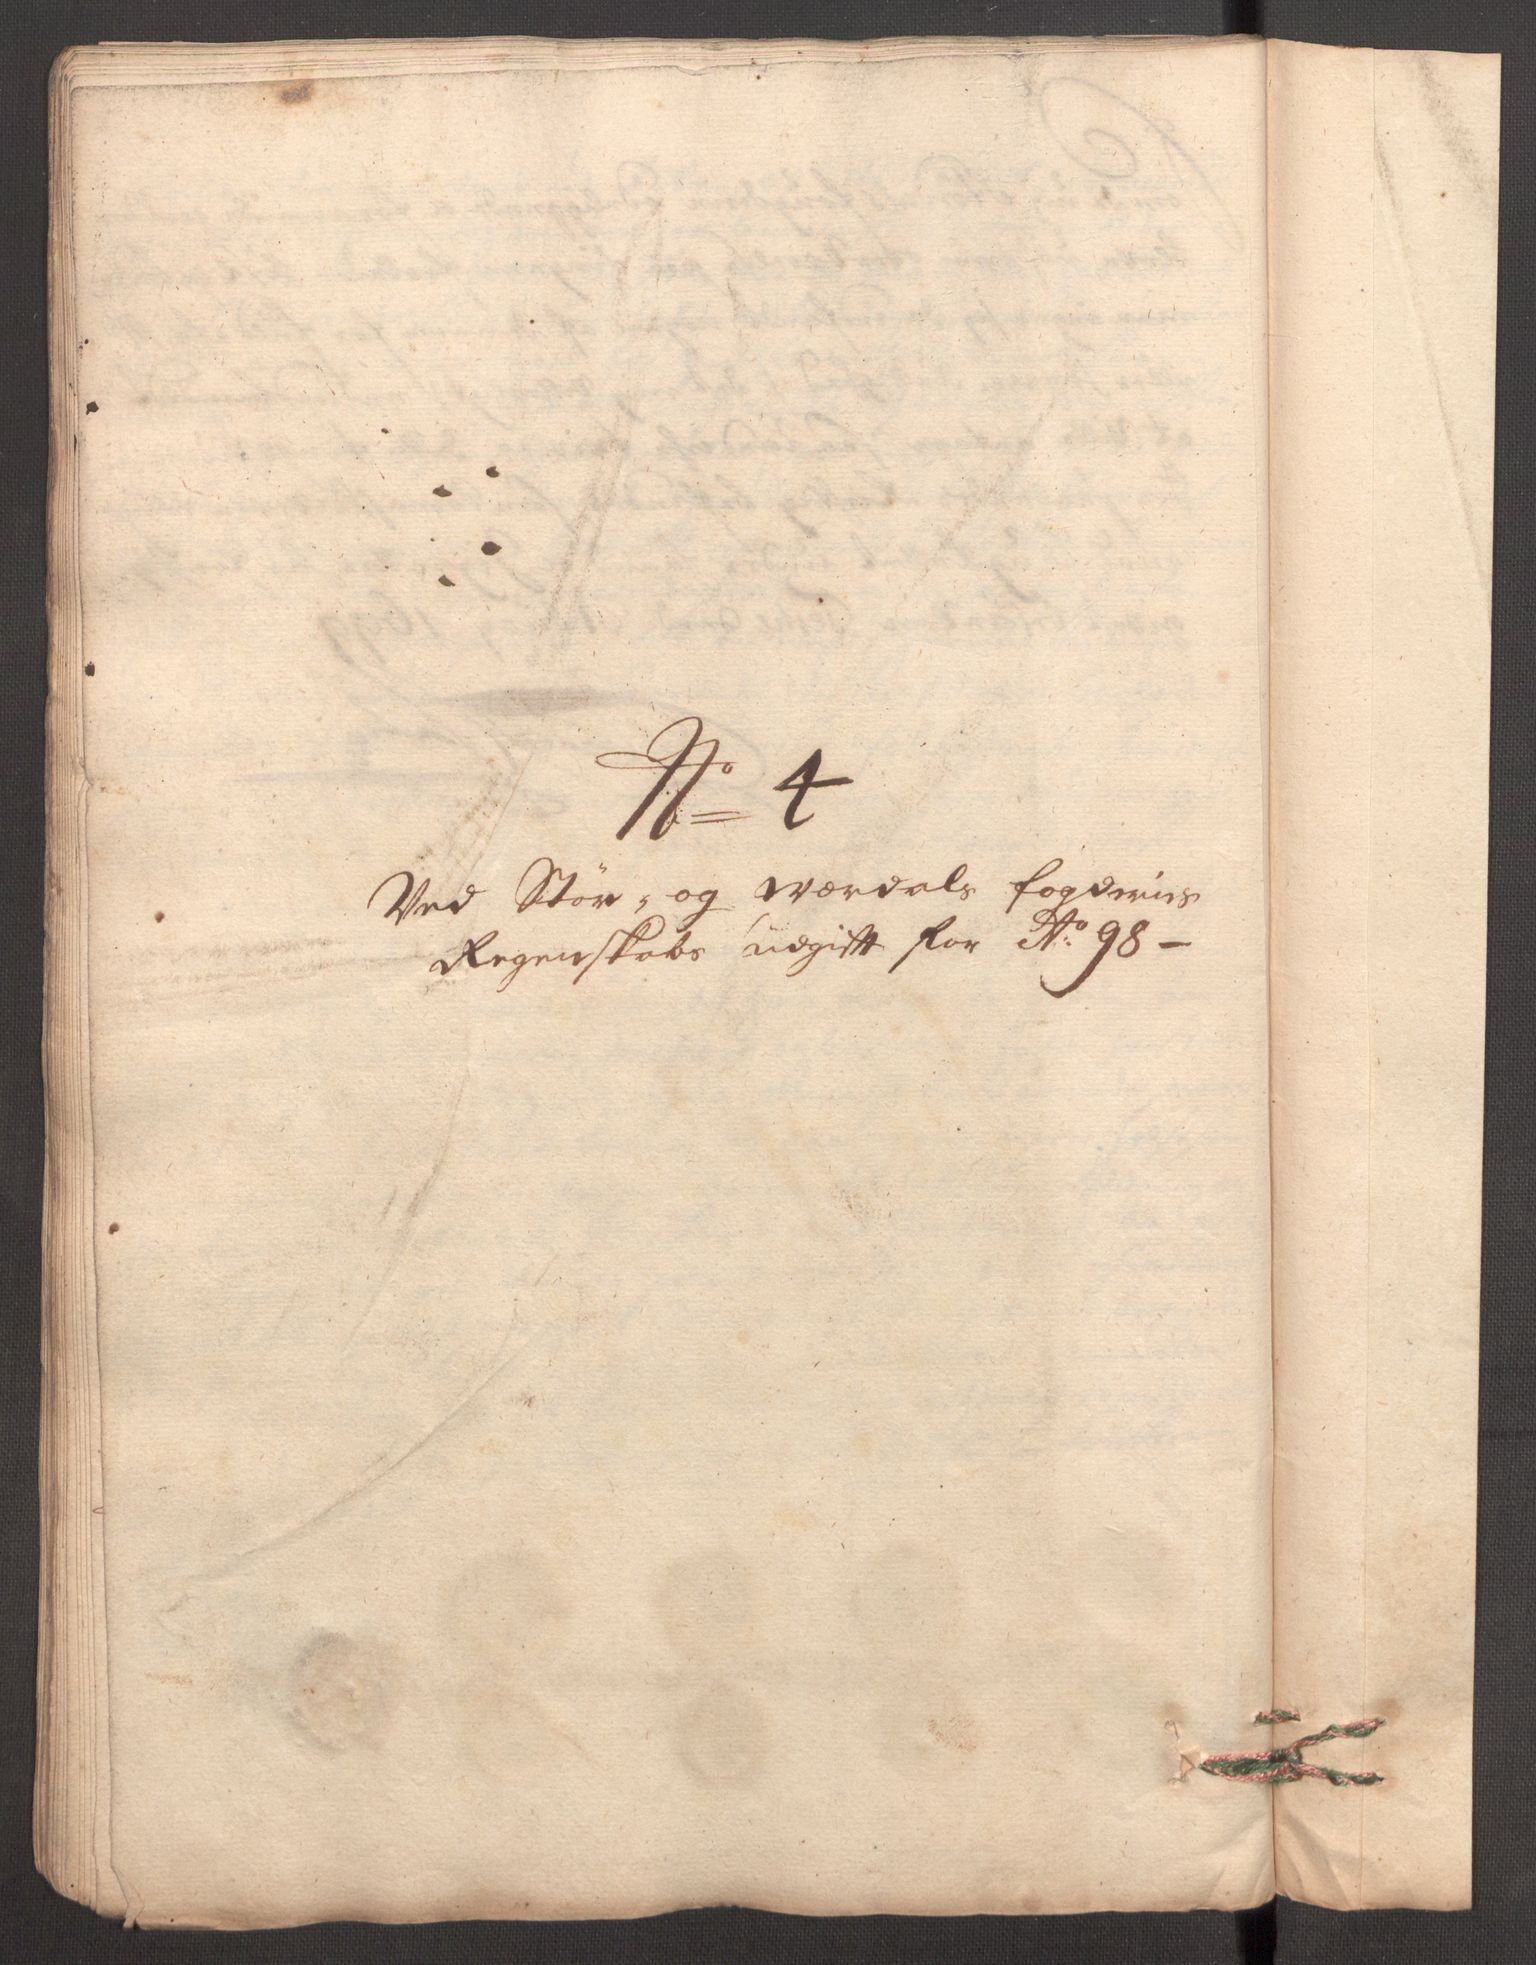 No 4
Ved Stör- og Værdals fogderies
Regenskabs udgifft for Ao 98 -